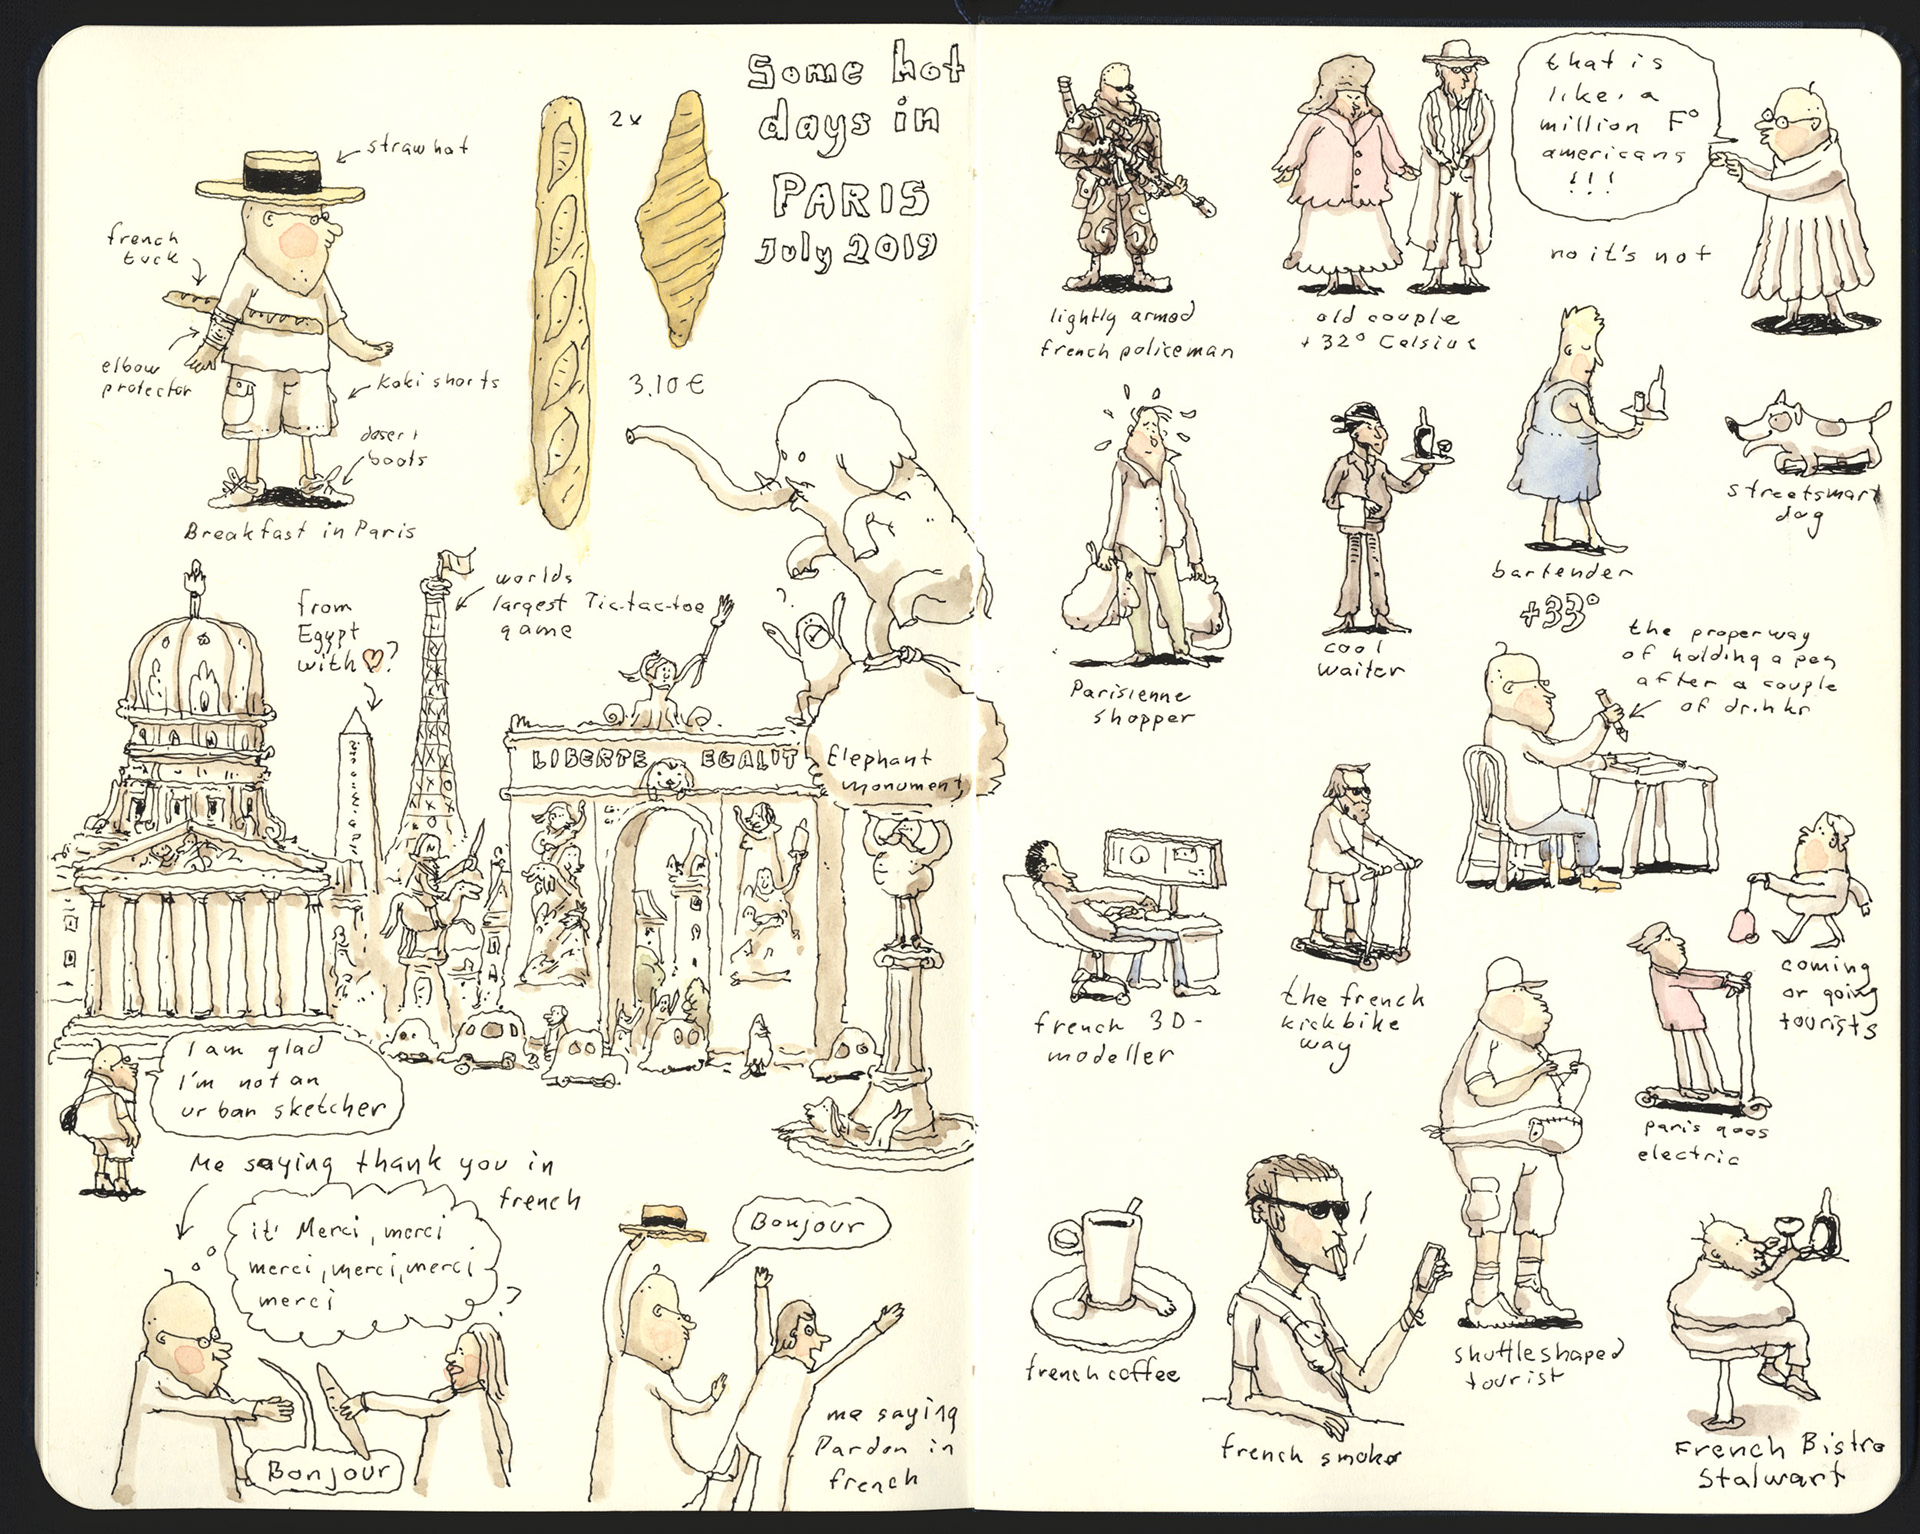 Some hot
days in
PARIS
July 2019
straw hat
french
tuck
elbow
protector
kaki shorts
desert
boots
Breakfast in Paris
2x
3.10 €
from
Egypt
with ♡?
worlds
largest Tic-tac-toe
game
?
LIBERTE EGALIT
Elephant
monument
I am glad
I'm not an
urban sketcher
Me saying thank you in
french
it' Merci, merci
merci, merci, merci
merci
?
Bonjour
Bonjour
me saying
Pardon in
french
lightly armed
french policeman
old couple
+32° Celsius
that is
like, a
million F°
americans
!!!
no it's not
Parisienne
shopper
cool
waiter
bartender
+33°
streetsmart
dog
the proper way
of holding a pen
after a couple
of drinks
french 3D-
modeller
the french
kickbike
way
coming
or going
tourists
paris goes
electric
french coffee
french smoke
shuttleshaped
tourist
French Bistro
Stalwart